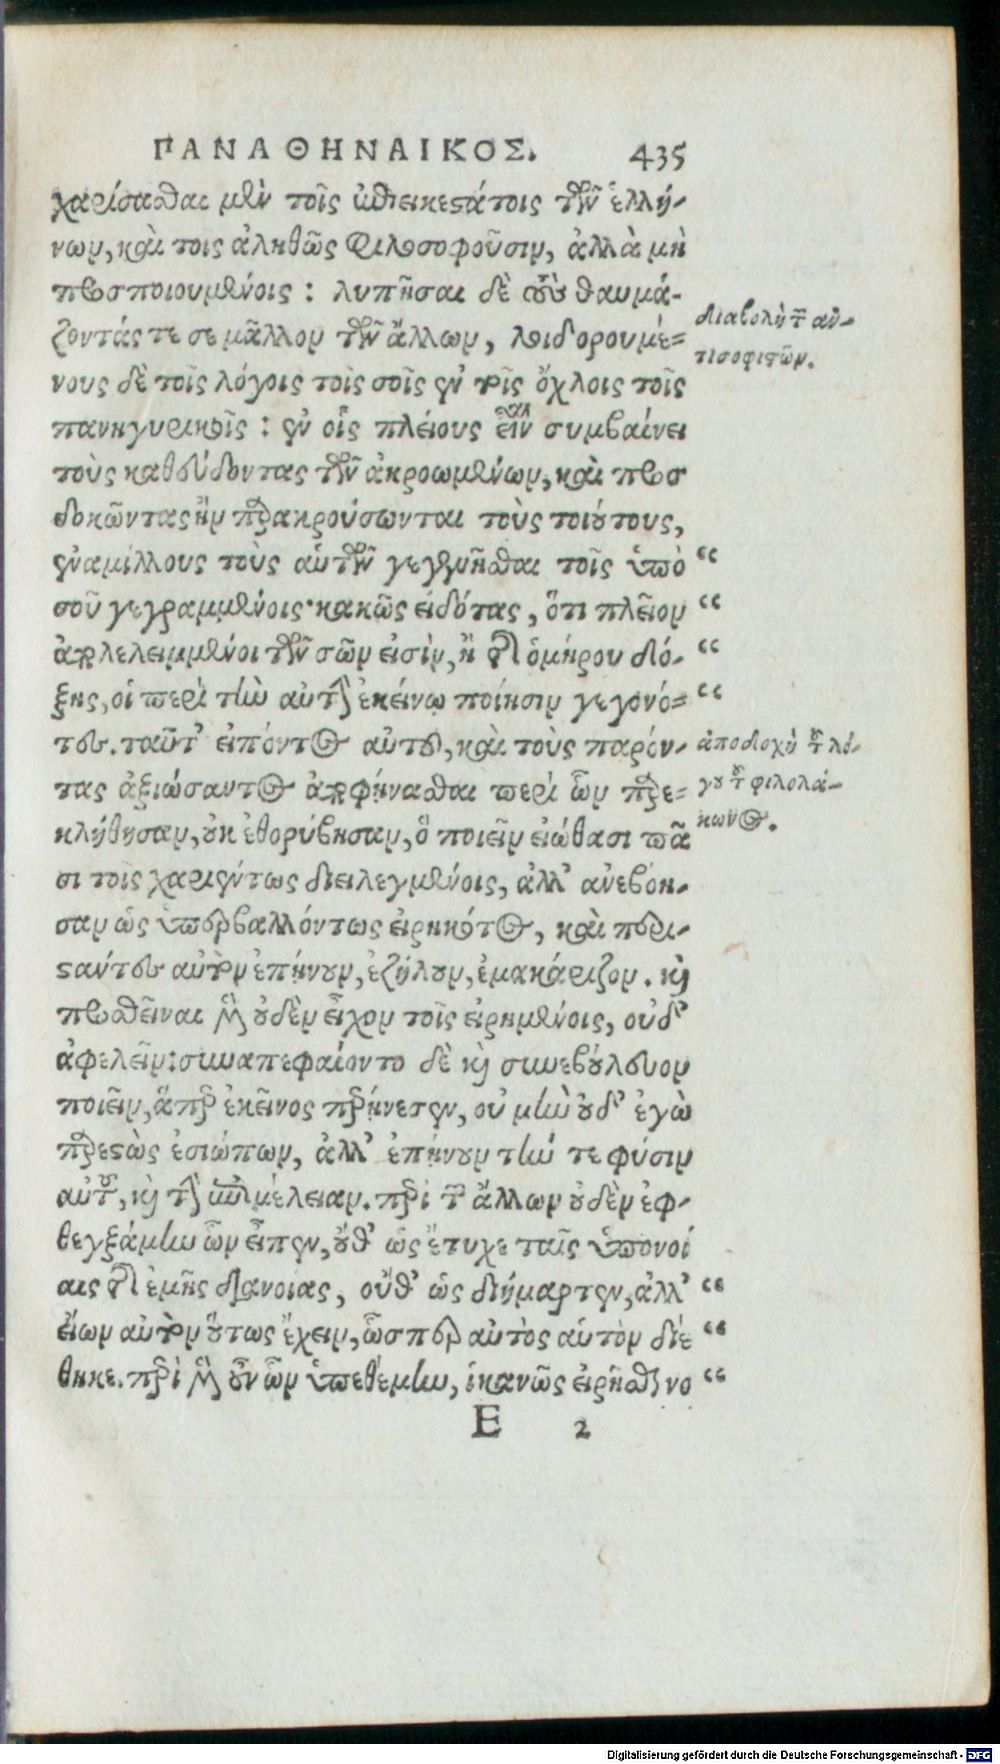 ΠΑΝΑΘΗΝΑΙΚΟΣ. 435
χαρίσασθαι μὲν τοῖς ἐπιεικεστάτοις τῶν ἑλλή-
νων, καὶ τοις ἀληθῶς φιλοσοφοῦσιν, ἀλλὰ μὴ
προσποιουμένοις : λυπῆσαι δὲ τοὺς θαυμά-
ζοντάς τε σε μᾶλλον τῶν ἄλλων, λοιδορουμέ-
νους δὲ τοῖς λόγοις τοῖς σοῖς ἐν τοῖς ὄχλοις τοῖς
πανηγυρικοῖς : ἐν οἷς πλείους εἶναι συμβαίνει
τοὺς καθεύδοντας τῶν ἀκροωμένων, καὶ προσ
δοκῶντας ἢν παρακρούσωνται τοὺς τοιούτους,
ἐναμίλλους τοὺς αὑτῶν γεγενῆσθαι τοῖς ὑπὸ “
σοῦ γεγραμμένοις· κακῶς εἰδότας, ὅτι πλεῖον “
ἀπολελειμμένοι τῶν σῶν εἰσὶν, ἢ τῆς ὁμήρου δό- “
ξης, οἱ περὶ τὴν αὐτὴν ἐκείνῳ ποίησιν γεγονό- “
τες. ταῦτ' εἰπόντος αὐτοῦ, καὶ τοὺς παρόν-
τας ἀξιώσαντος ἀποφήνασθαι περὶ ὧν παρε-
κλήθησαν, οὐκ ἐθορύβησαν, ὃ ποιεῖν εἰώθασι πᾶ
σι τοῖς χαριέντως διειλεγμένοις, ἀλλ' ἀνεβόη-
σαν ὡς ὑπερβαλλόντως εἰρηκότος, καὶ περι-
στάντες αὐτὸν ἐπῄνουν, ἐζήλουν, ἐμακάριζον. καὶ
προσθεῖναι μὲν οὐδὲν εἶχον τοῖς εἰρημένοις, οὐδ'
ἀφελεῖν: συναπεφαίοντο δὲ καὶ συνεβούλευον
ποιεῖν, ἅπερ ἐκεῖνος παρῄνεσεν, οὐ μὴν οὐδ' ἐγὼ
παρεστὼς ἐσιώπων, ἀλλ' ἐπῄνουν τήν τε φύσιν
αὐτοῦ, καὶ τὴν ἐπιμέλειαν. περὶ τῶν ἄλλων οὐδὲν ἐφ-
θεγξάμην ὧν εἶπεν, οὔθ' ὡς ἔτυχε ταῖς ὑπονοί
αις τῆς ἐμῆς διανοίας, οὔθ' ὡς διήμαρτεν, ἀλλ' “
εἴων αὐτὸν οὕτως ἔχειν, ὥσπερ αὐτὸς αὑτὸν διέ “
θηκε. περὶ μὲν οὖν ὧν ὑπεθέμην, ἱκανῶς εἰρῆσθαι νο “
E 2
διαβολὴ τῶν ἀν-
τισοφιστῶν.
ἀποδοχὴ τοῦ λό-
γου τοῦ φιλολά-
κωνος.
Digitalisierung gefördert durch die Deutsche Forschungsgemeinschaft - DFG